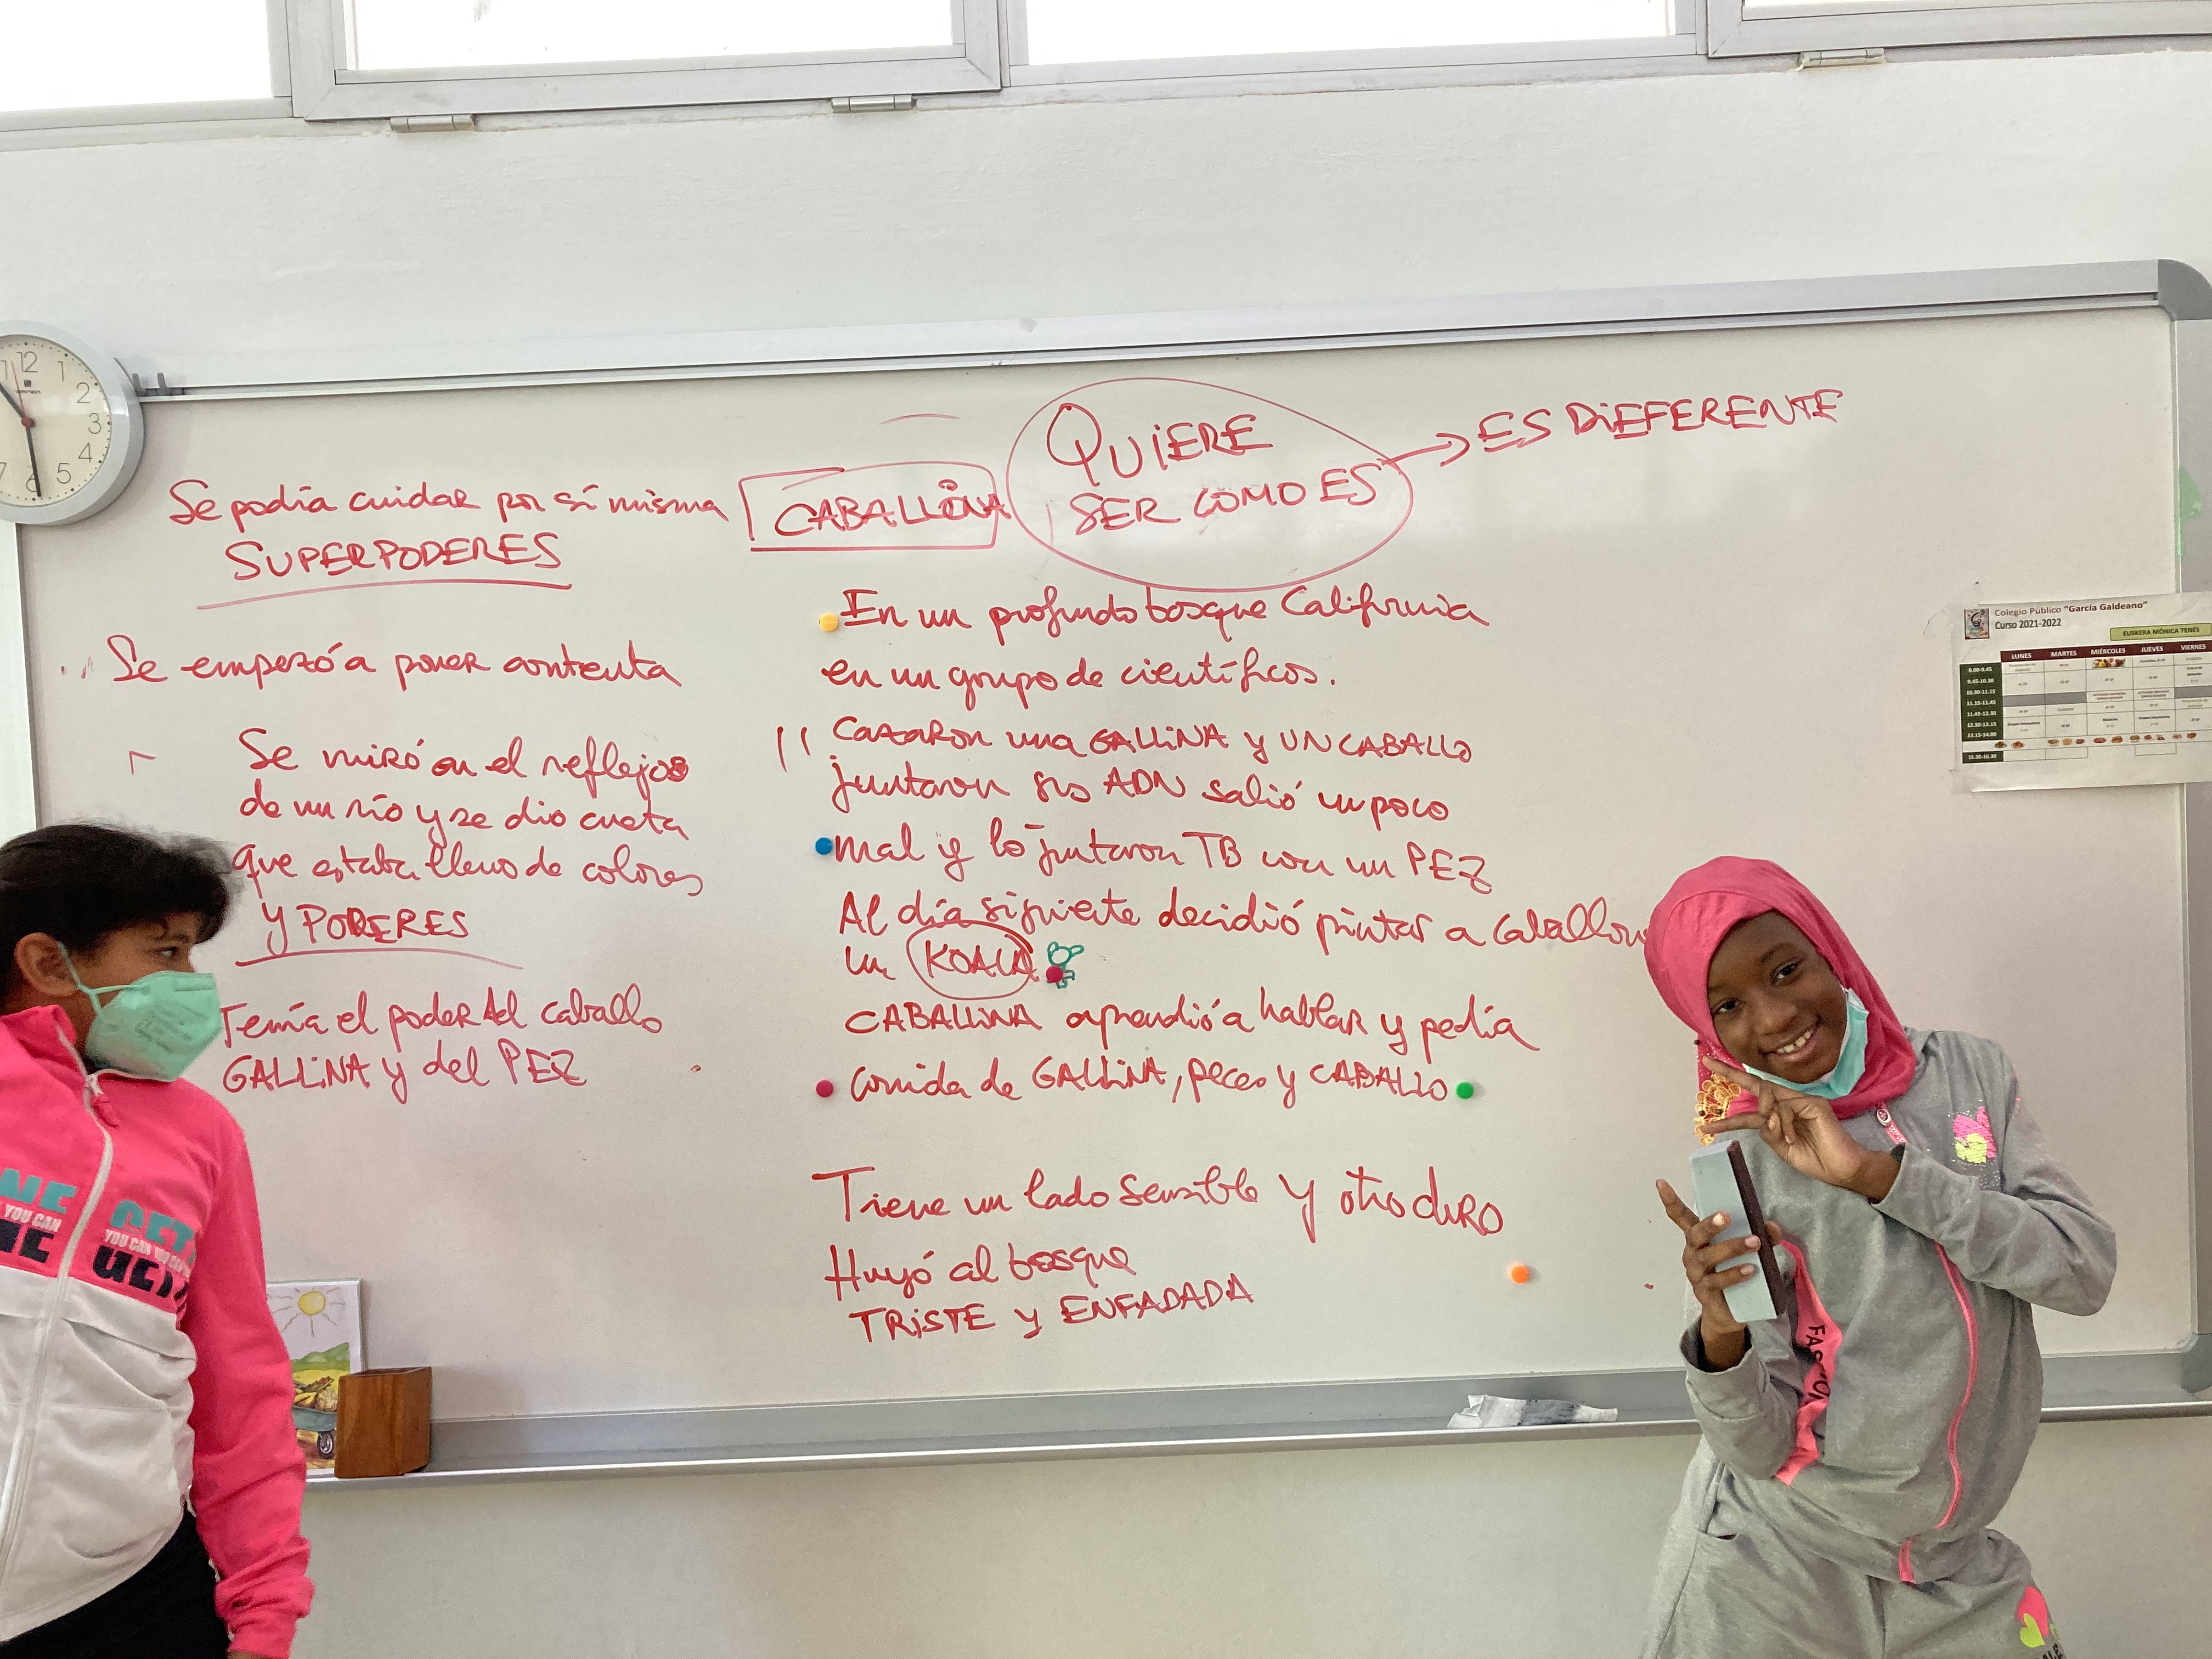 QUIERE
SER COMO ES
ES DIEFERENTE
CABALLINA
Se podía cuidar por sí misma
SUPERPODERES
Se empezó a poner contenta
Se miró en el reflejos
de un río y se dio cueta
que estaba lleno de colores
Y PODERES
Tenía el poder del caballo
GALLINA y del PEZ
En un profundo bosque California
en un grupo de científicos.
Cazaron una GALLINA y UN CABALLO
juntaron sus ADN salió un poco
mal y lo juntaron TB con un PEZ
Al día siguiente decidió pintar a
un KOALA
CABALLINA aprendió a hablar y pedía
comida de GALLINA, peces y CABALLO
Tiene un lado sensible y otro duro
Huyó al bosque
TRISTE y ENFADADA
Colegio Público "García Galdeano"
Curso 2021-2022
EUSKERA MÓNICA TENÉS
LUNES MARTES MIÉRCOLES JUEVES VIERNES
9.00-9.45
9.45-10.30
10.30-11.15
11.15-11.45
11.45-12.30
12.30-13.15
13.15-14.00
15.30-16.30
12
1
2
3
4
5
6
7
YOU CAN
YOU CAN